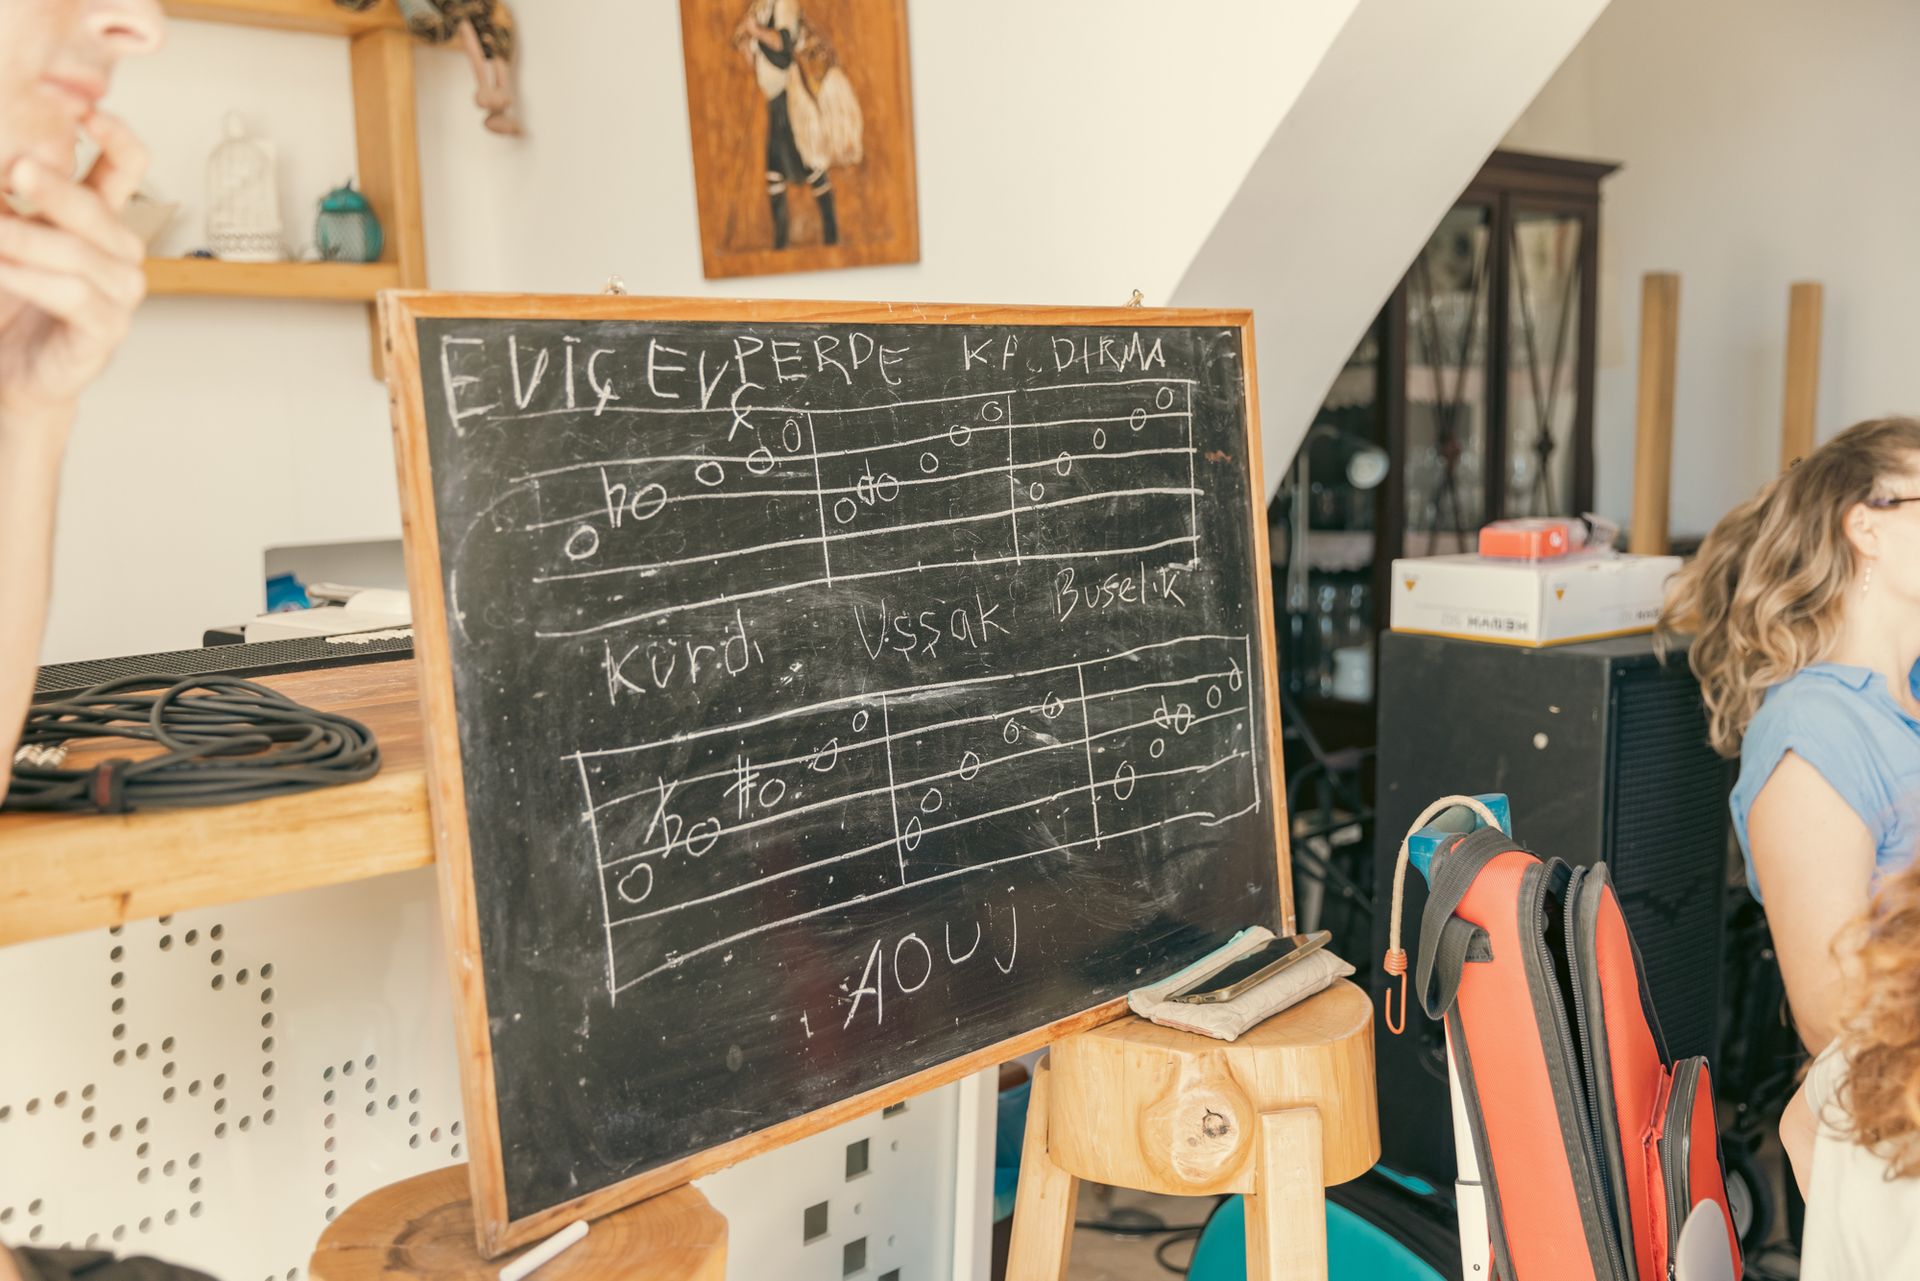 EViÇ EVÇ PERDE KALDIRMA
Kürdi Uşşak Buselik